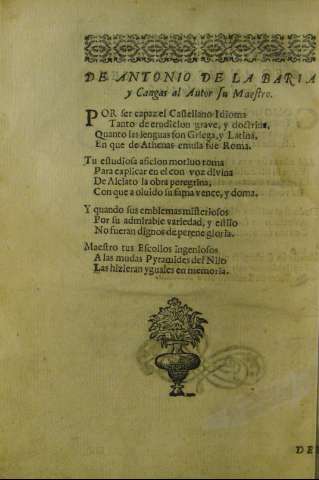 DE ANTONIO DE LA BARIA
y Cangas al Autor su Maestro.
POR ser capaz el Castellano Idioma
Tanto de erudicion grave, y doctrina,
Quanto las lenguas son Griega, y Latina,
En que de Athenas emula fue Roma.
Tu estudiosa aficion motiuo toma
Para explicar en el con voz divina
De Alciato la obra peregrina,
Con que a oluido su fama vence, y doma.
Y quando sus emblemas misteriosos
Por su admirable variedad, y estilo
No fueran dignos de perene gloria.
Maestro tus Escolios ingeniosos
A las mudas Pyramides del Nilo
Las hizieran yguales en memoria.
DE